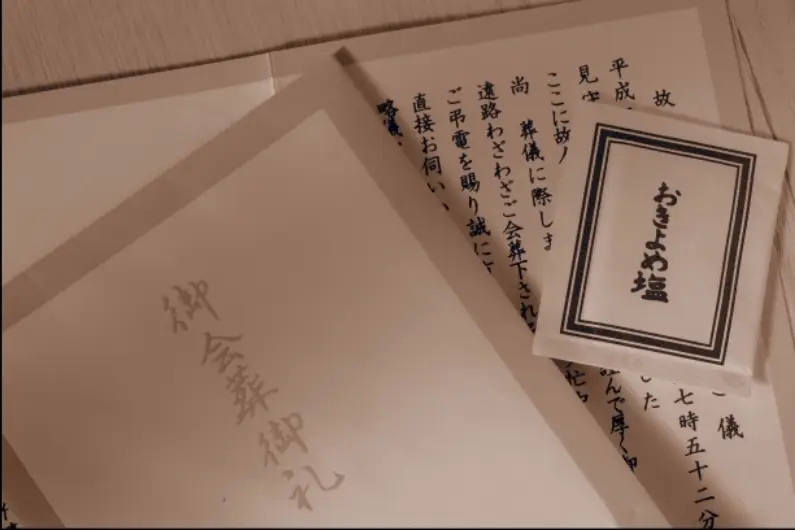 故
儀
平成
七時五十二分
見守
した
ここに故
尚 葬儀に際しま
んで厚く御
遠路わざわざご会葬下され
ご弔電を賜り誠に
直接お伺い
略儀
おきよめ塩
御会葬御礼